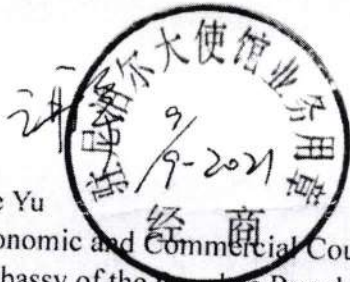 驻尼泊尔大使馆业务用章
9/9-2021
经商
e Yu
onomic and Commercial Cou
bassy of the